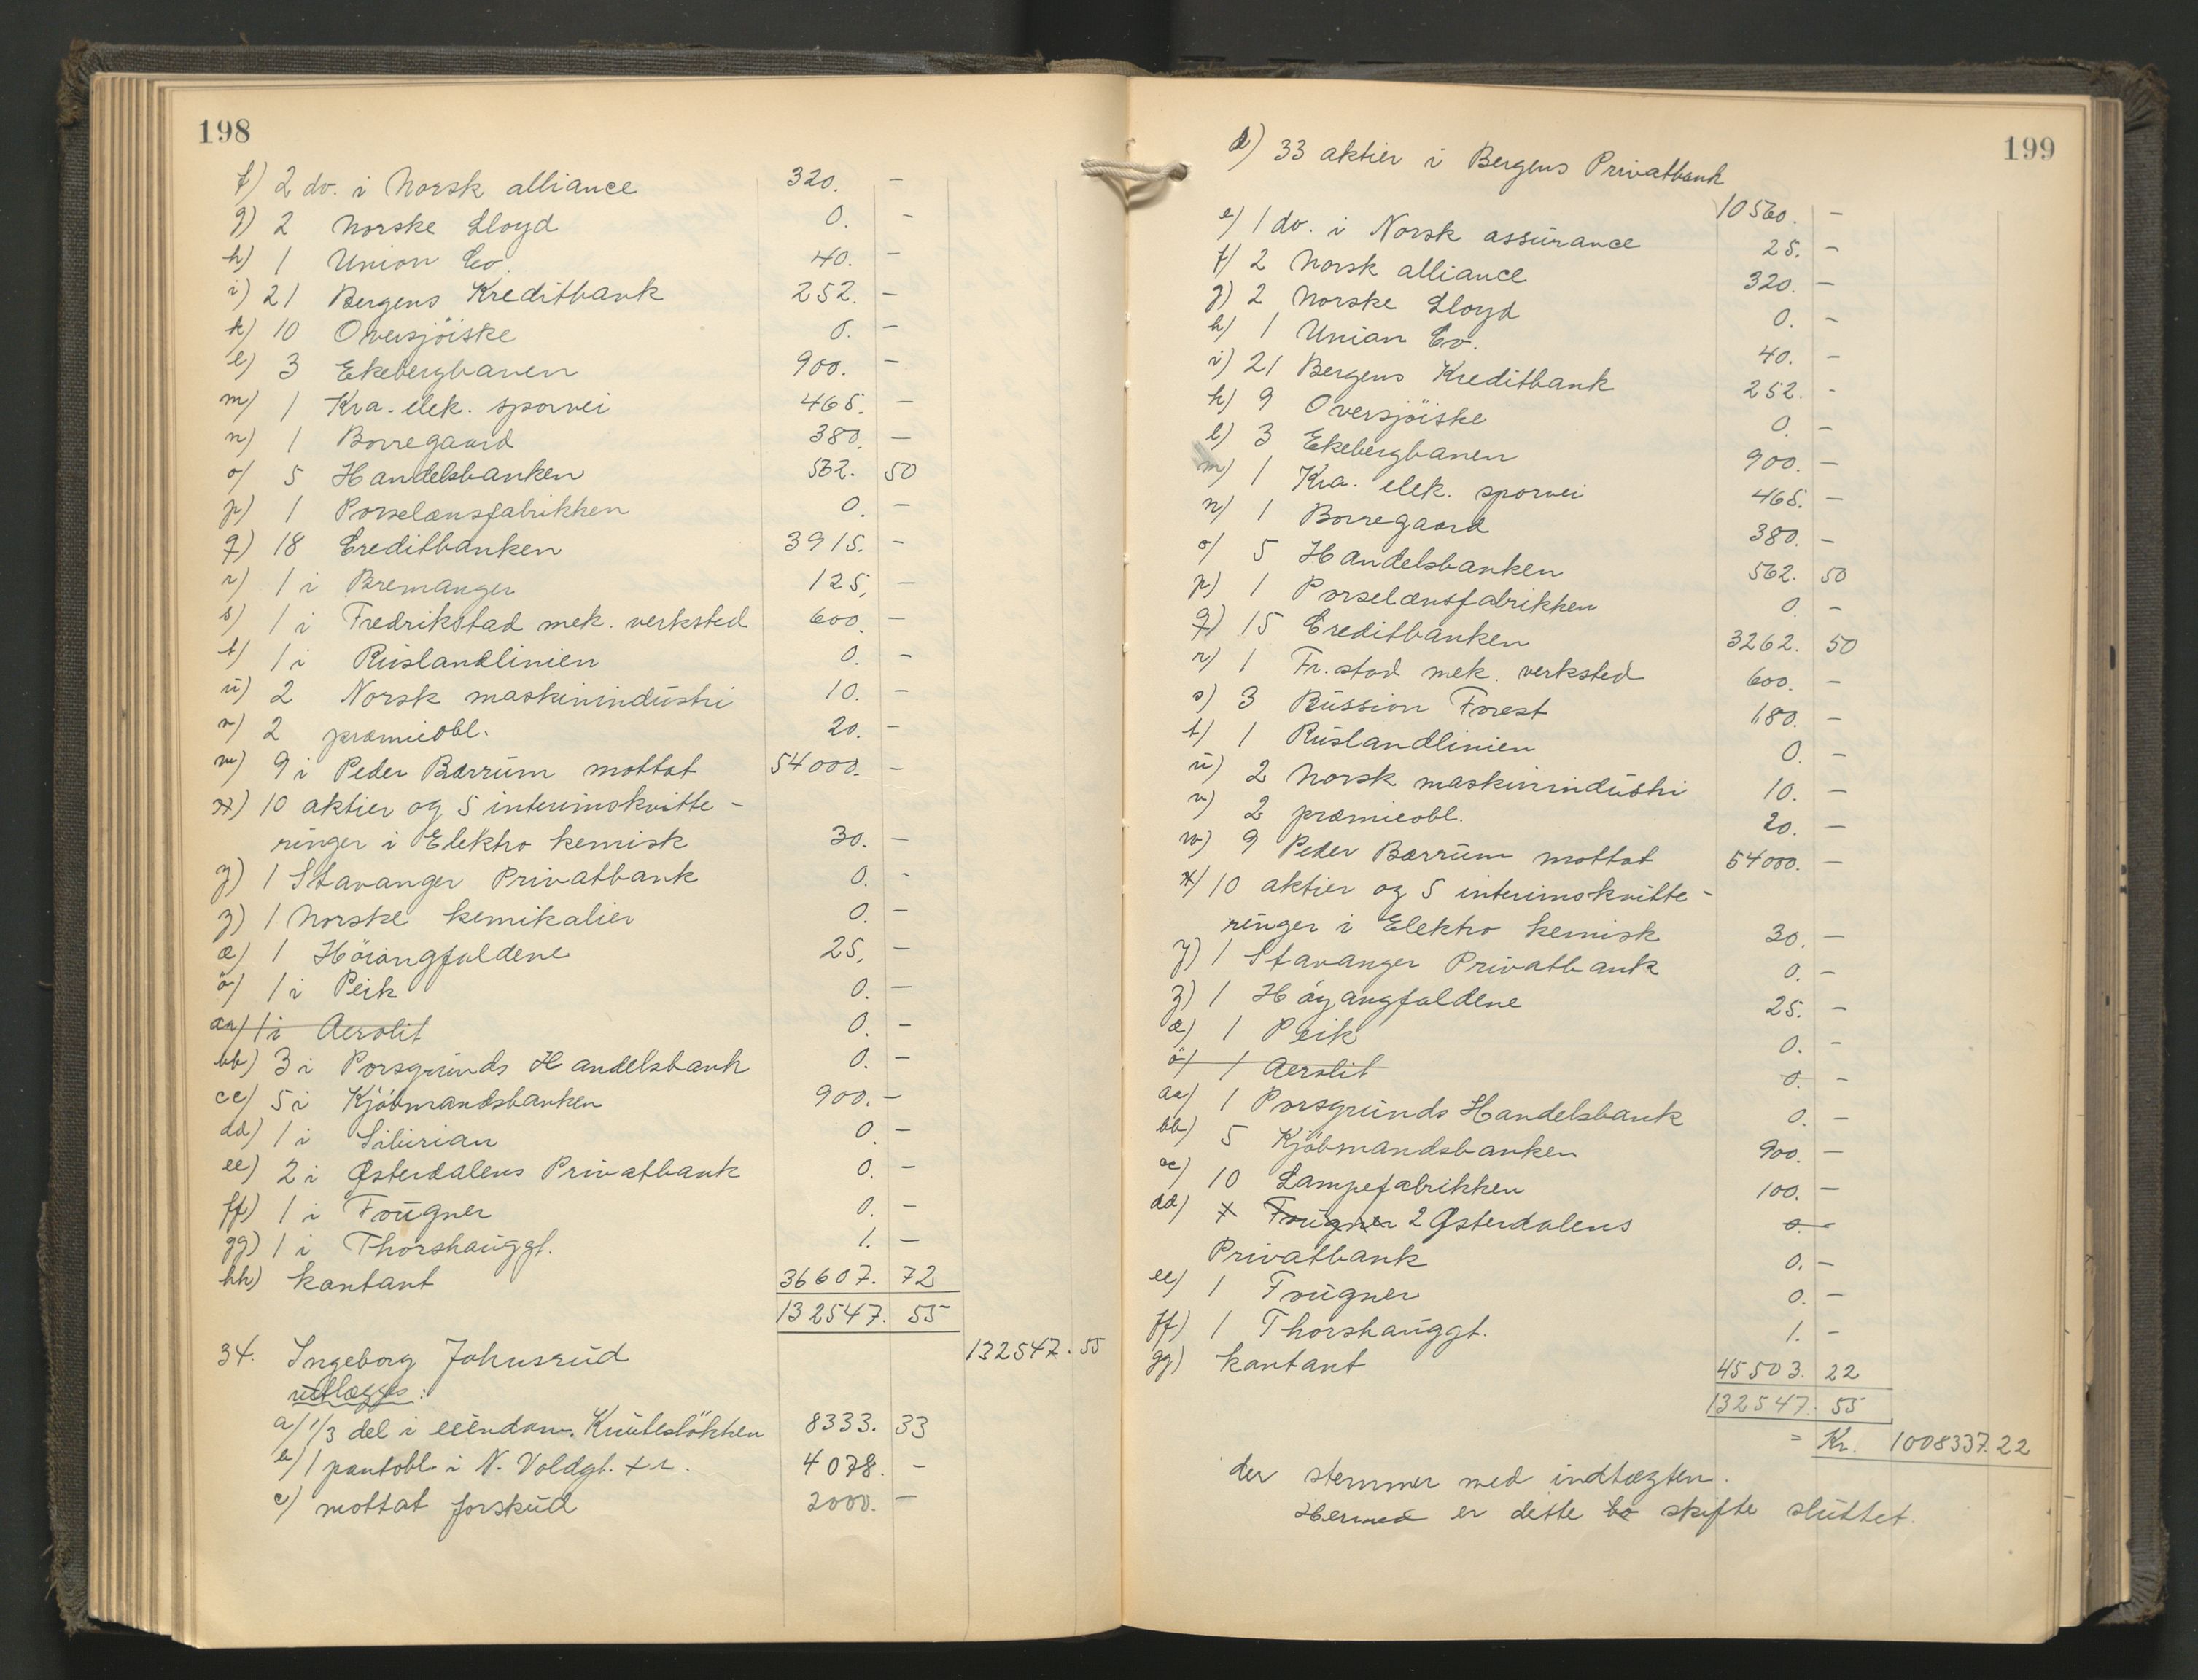 198
f) 2 do. i Norsk alliance 320. -
g) 2 Norske Lloyd 0. -
h) 1 Union Co. 40. -
i) 21 Bergens Kreditbank 252. -
k) 10 Oversjöiske 0. -
l) 3 Ekebergbanen 900. -
m) 1 Kra. elek. sporvei 465. -
n) 1 Borregaard 380. -
o) 5 Handelsbanken 562. 50
p) 1 Porselænsfabrikken 0. -
q) 18 Creditbanken 3915. -
r) 1 i Bremanger 125, -
s) 1 i Fredrikstad mek. verksted 600. -
t) 1 i Ruslandlinien 0. -
u) 2 Norsk maskinindustri 10. -
v) 2 præmieobl. 20. -
w) 9 i Peder Bærrum mottat 54000. -
x) 10 aktier og 5 interimskvitte-
ringer i Elektro kemisk 30. -
y) 1 Stavanger Privatbank 0. -
z) 1 Norske kemikalier 0. -
æ) 1 Höiangfaldene 25, -
ö) 1 i Peik 0. -
aa) 1 i Aerolit 0. -
bb) 3 i Porsgrunds Handelsbank 0. -
cc) 5 i Kjöbmandsbanken 900. -
dd) 1 i Sibirian 0. -
ee) 2 i Østerdalens Privatbank 0. -
ff) 1 i Frugner 0. -
gg) 1 i Thorshauggt. 1. -
hh) kontant 36607. 72
132547. 55
34. Ingeborg Johnsrud 132547. 55
utlægges:
a) 1/3 del i eiendom. Knutesløkken 8333. 33
b) 1 pantobl. i N. Voldgt. + r. 4078. -
c) mottat forskud 2000. -
199
d) 33 aktier i Bergens Privatbank
10560. -
e) 1 do. i Norsk assurance 25. -
f) 2 Norsk alliance 320. -
g) 2 Norske Lloyd 0. -
h) 1 Union Co. 40. -
i) 21 Bergens Kreditbank 252. -
k) 9 Oversjöiske 0. -
l) 3 Ekebergbanen 900. -
m) 1 Kra. elek. sporvei 465. -
n) 1 Borregaard 380. -
o) 5 Handelsbanken 562. 50
p) 1 Porselænsfabrikken 0. -
q) 15 Creditbanken 3262. 50
r) 1 Fr.stad mek. verksted 600. -
s) 3 Russion Forest 180. -
t) 1 Ruslandlinien 0. -
u) 2 Norsk maskinindustri 10. -
v) 2 præmieobl. 20. -
w) 9 Peder Bærrum mottat 54000. -
x) 10 aktier og 5 interimskvitte-
ringer i Elektro kemisk 30. -
y) 1 Stavanger Privatbank 0. -
z) 1 Høyangfaldene 25. -
æ) 1 Peik 0. -
ö) 1 Aerolit 0. -
aa) 1 Porsgrunds Handelsbank 0. -
bb) 5 Kjöbmandsbanken 900. -
cc) 10 Lampefabrikken 100. -
dd) 1 Frugner 2 Østerdalens 0. -
Privatbank 0. -
ee) 1 Frugner 0. -
ff) 1 Thorshauggt. 1. -
gg) kontant 45503. 22
132547. 55
= Kr. 1008337.22
der stemmer med indtægten.
Hermed er dette bo skifte sluttet.